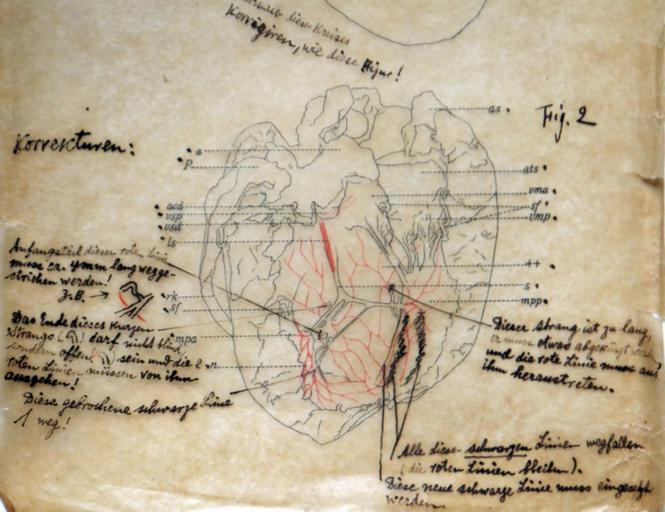 innerhalb dieses Kreises
Korrigiren, wie diese Figur!
Fig. 2
Korrekturen:
a
p
acd
vsp
vsd
ls
rk
sf
mpa
n
as
ats
vma
sf
vmp
++
s
mpp
Anfangsteil dieser roten Linie
muss ca. 4mm lang wegge-
strichen werden!
z.B. →
Das Ende dieses kurzen
Strangs ( ) darf nicht blind,
sondern offen ( ) sein und die 2
roten Linien müssen von ihm
ausgehen!
Diese gebrochene schwarze Linie
weg!
Dieser Strang ist zu lang,
er muss etwas abgekürzt werden
und die rote Linie muss aus
ihm heraustreten.
Alle diese schwarzen Linien wegfallen
(die roten Linien bleiben).
Diese neue schwarze Linie muss eingesetzt
werden.